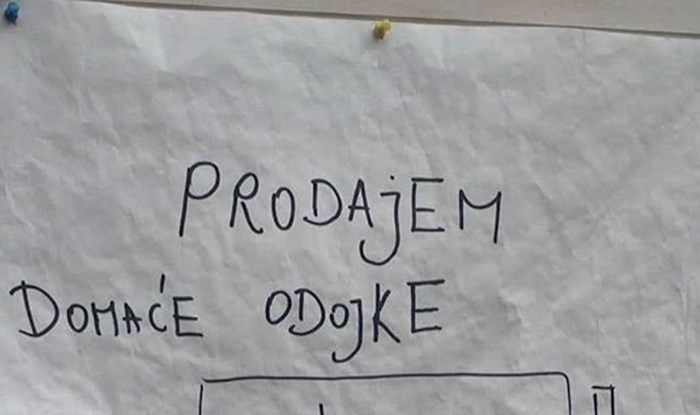 PRODAjEM
DOMAĆE ODOjKE